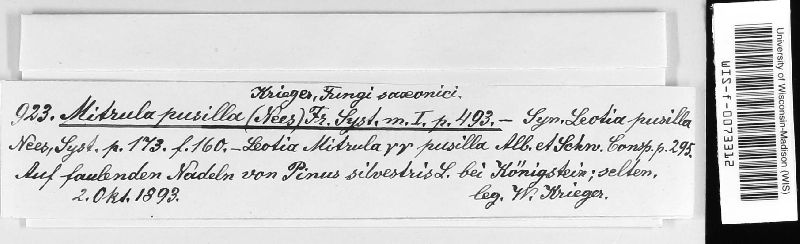 Krieger, Fungi saxonici.
923. Mitrula pusilla (Nees) Fr. Syst. m. I. p. 493. – Syn. Leotia pusilla
Nees, Syst. p. 173. f. 160. – Leotia Mitrula γγ pusilla Alb. et Schw. Consp. p. 295.
Auf faulenden Nadeln von Pinus silvestris L. bei Königstein; selten.
2. Okt. 1893. leg. W. Krieger.
University of Wisconsin-Madison (WIS)
WIS-f-0073312